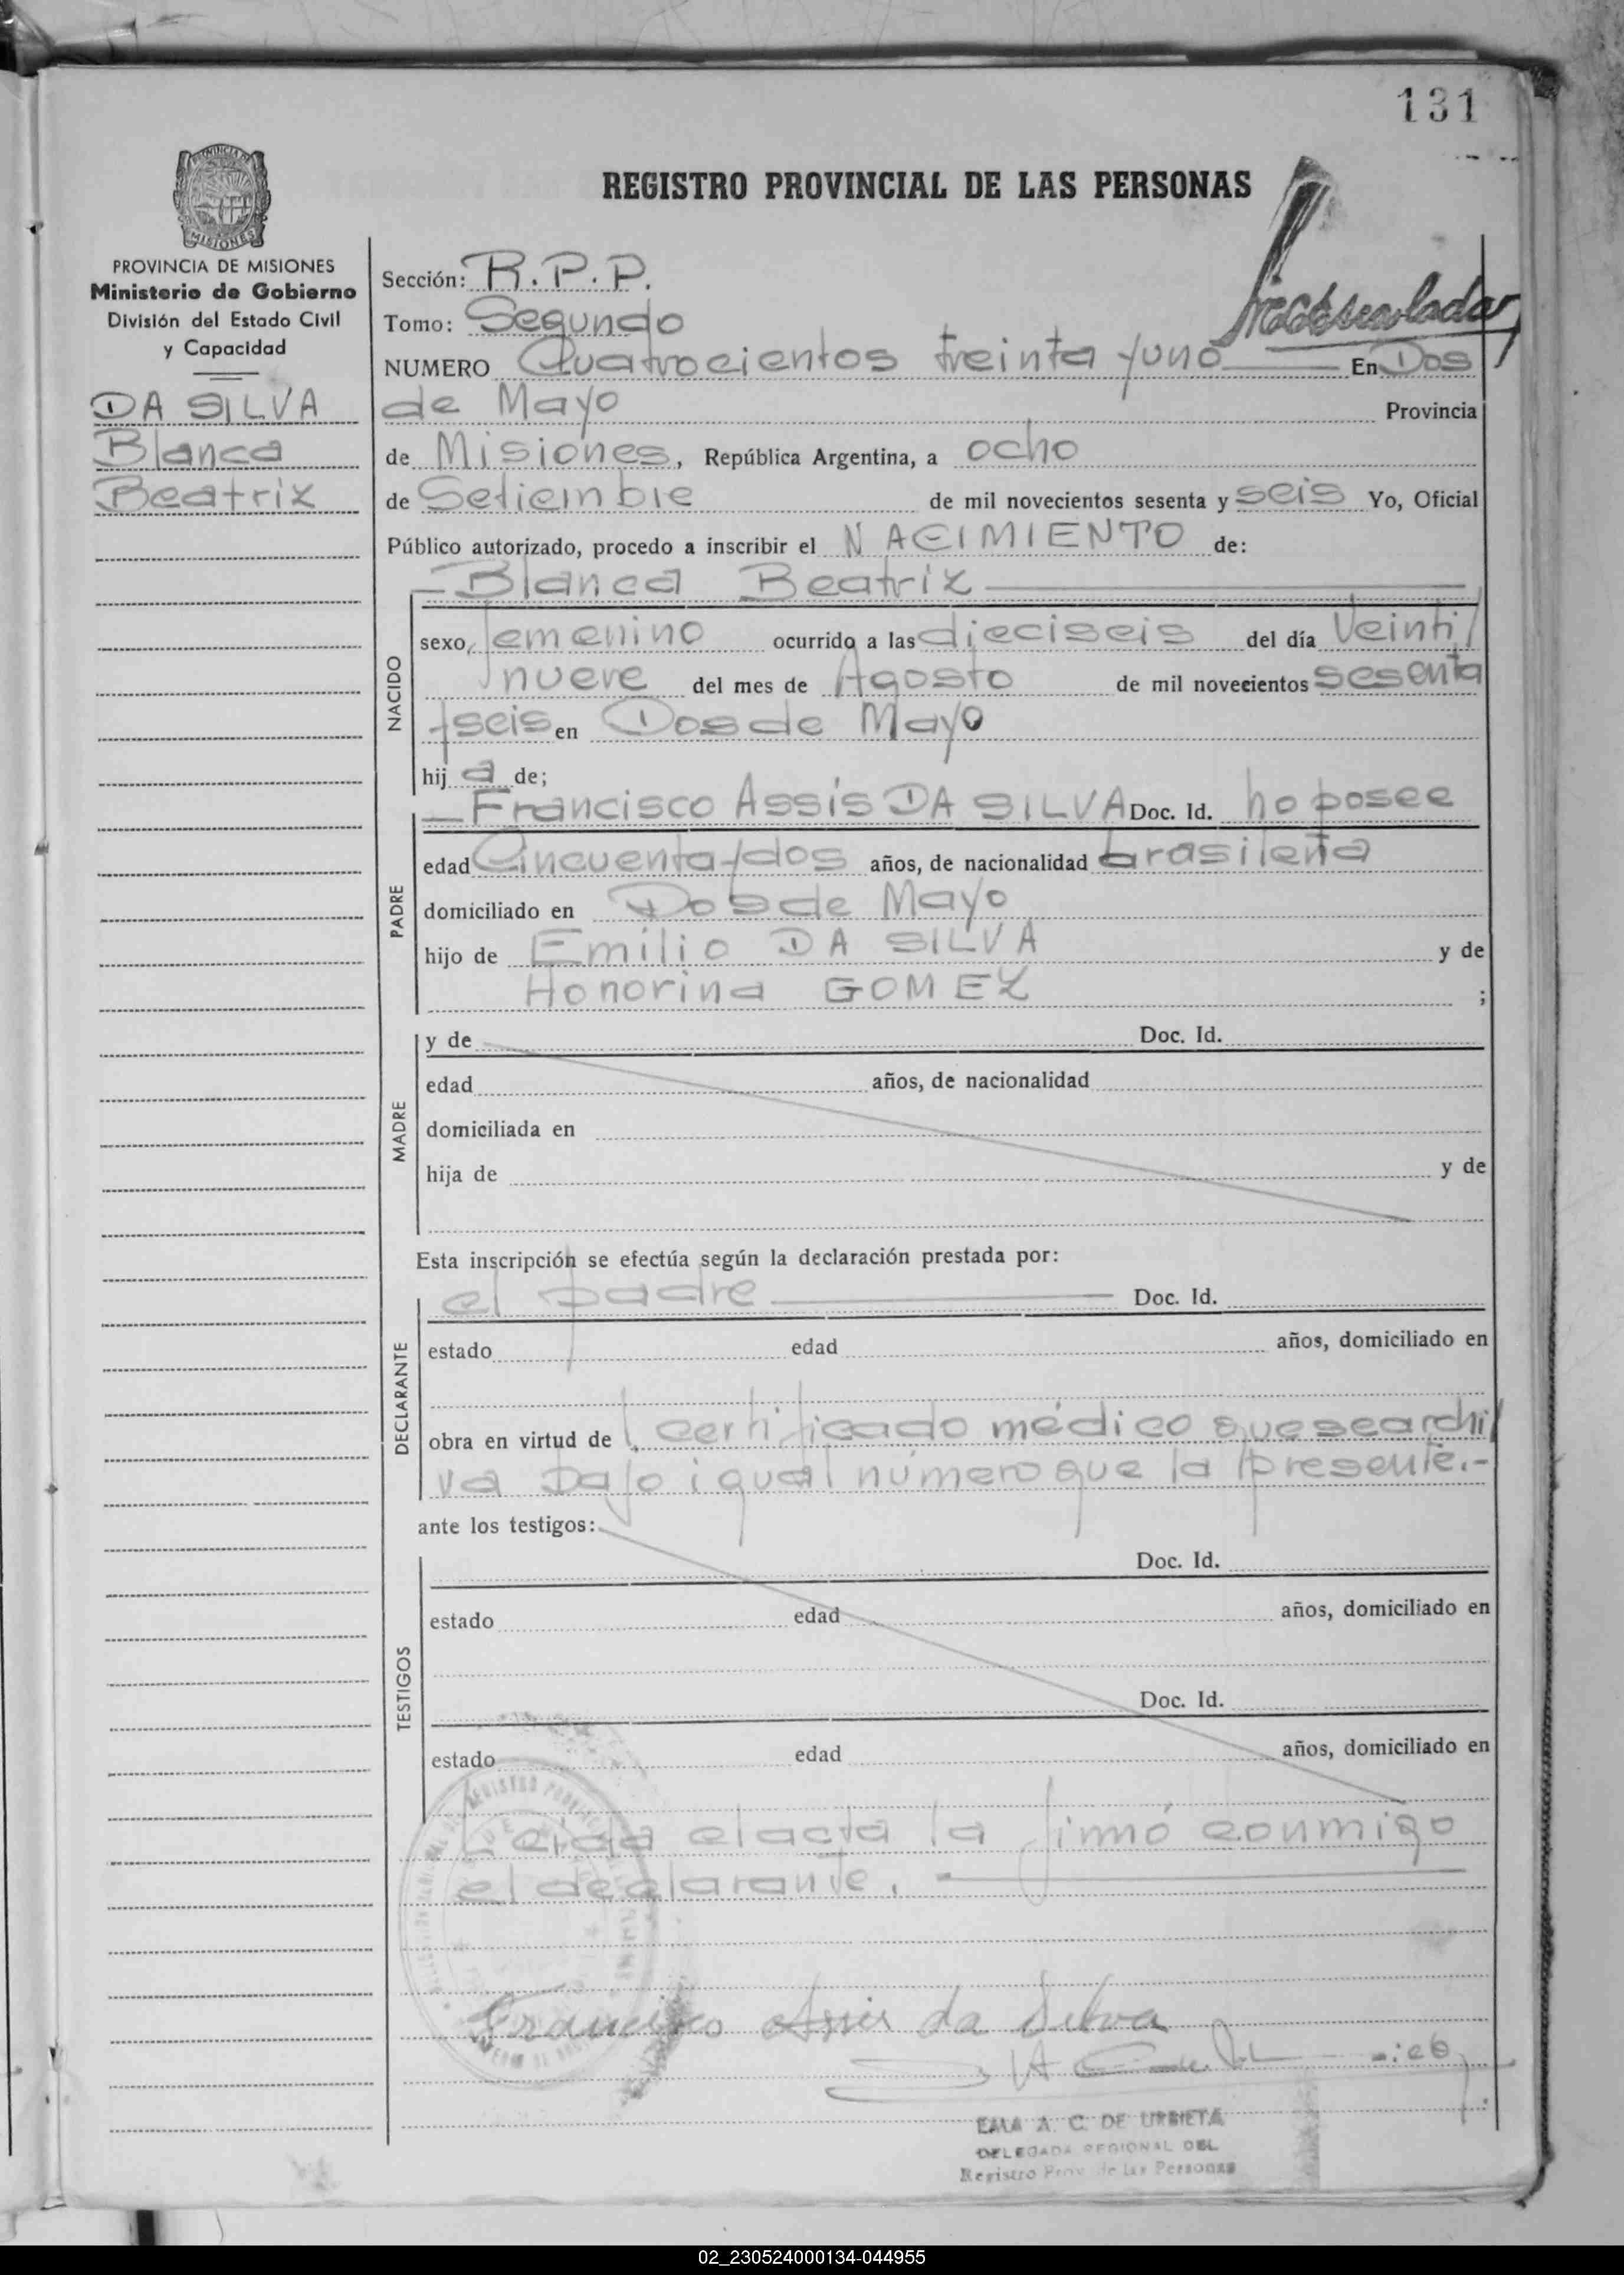 131
REGISTRO PROVINCIAL DE LAS PERSONAS
PROVINCIA DE MISIONES
Ministerio de Gobierno
División del Estado Civil
y Capacidad
DA SILVA
Blanca
Beatriz
Sección: R.P.P.
Tomo: Segundo
NUMERO Quatrocientos treinta y uno En Dos
de Mayo Provincia
de Misiones, República Argentina, a ocho
de Setiembre de mil novecientos sesenta y seis Yo, Oficial
Público autorizado, procedo a inscribir el NACIMIENTO de:
Blanca Beatriz
NACIDO
sexo femenino ocurrido a las dieciseis del día Veinti
nueve del mes de Agosto de mil novecientos sesenta
y seis en Dos de Mayo
hij a de;
PADRE
Francisco Assis DA SILVA Doc. Id. no posee
edad Cincuenta y dos años, de nacionalidad brasileña
domiciliado en Dos de Mayo
hijo de Emilio DA SILVA y de
Honorina GOMEZ ;
MADRE
y de Doc. Id.
edad años, de nacionalidad
domiciliada en
hija de y de
Esta inscripción se efectúa según la declaración prestada por:
DECLARANTE
el padre Doc. Id.
estado edad años, domiciliado en
obra en virtud de l certificado médico que se archi
va bajo igual número que la presente.-
ante los testigos:
TESTIGOS
Doc. Id.
estado edad años, domiciliado en
Doc. Id.
estado edad años, domiciliado en
Leida el acta la firmó conmigo
el declarante.
Francisco Assis da Silva
EMA A. C. DE URBIETA
DELEGADA REGIONAL DEL
Registro Prov. de las Personas
02_230524000134-044955